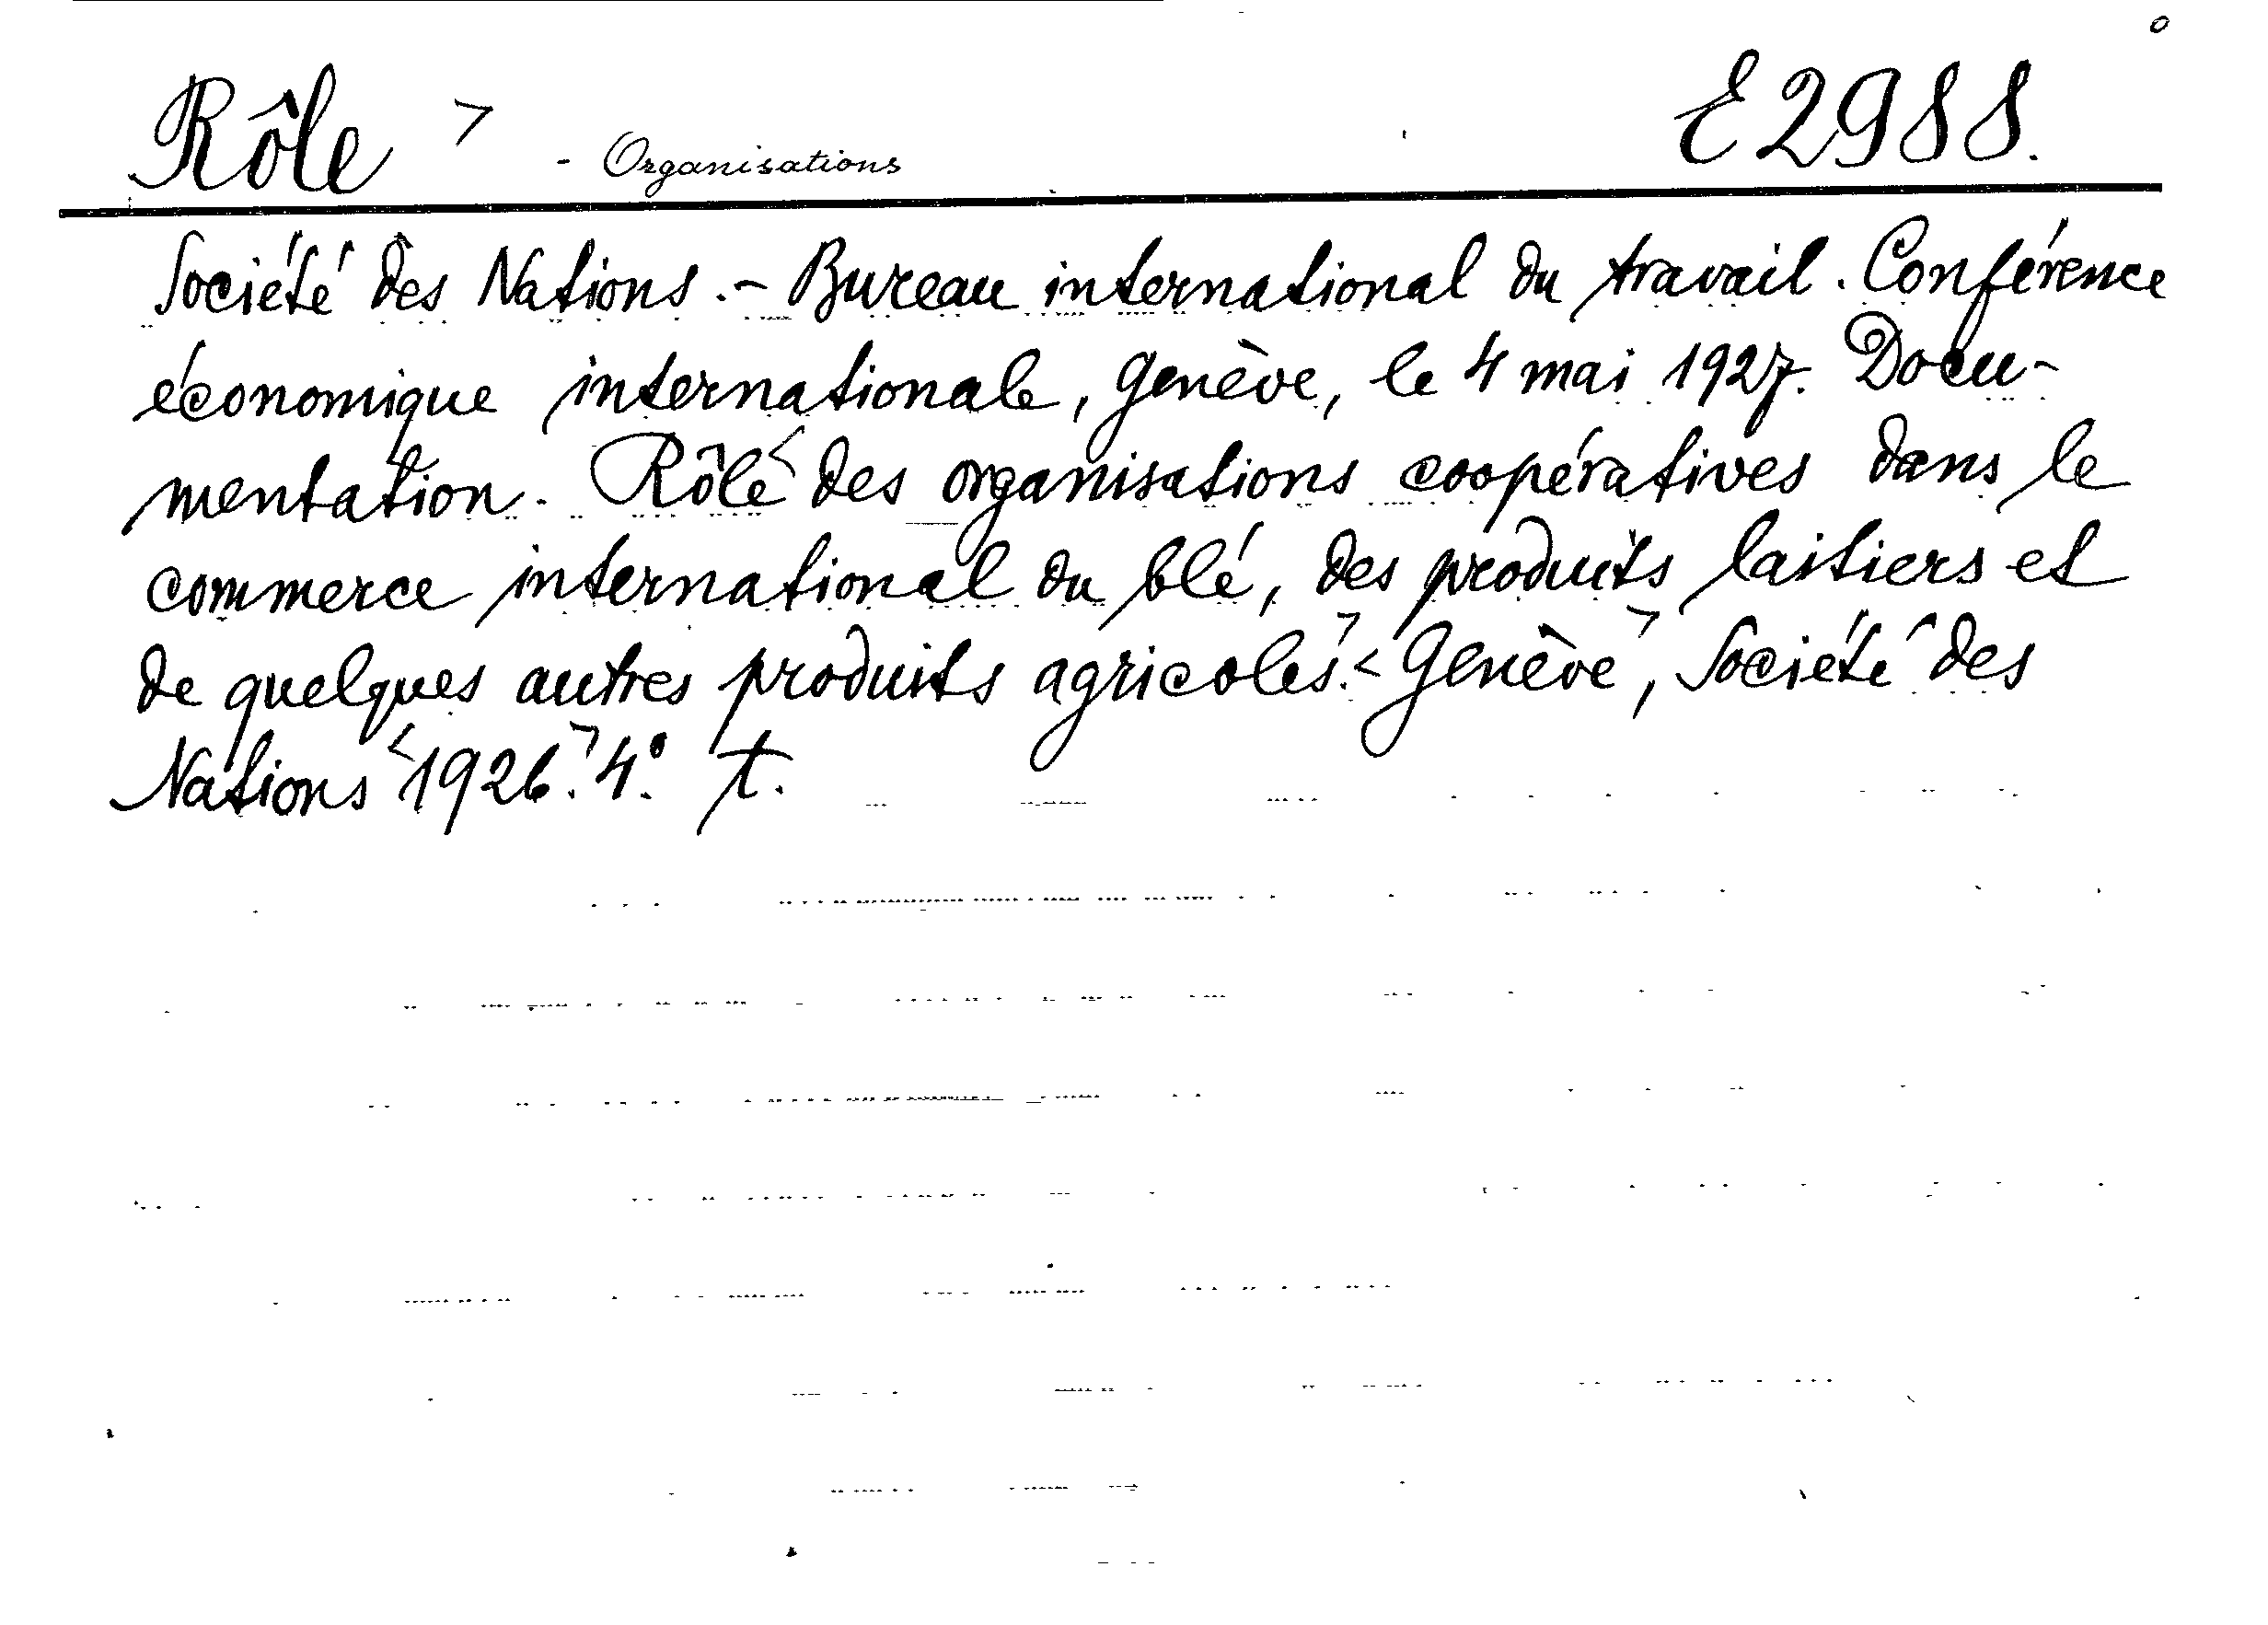 Rôle > - Organisations E2988.
Société des Nations. - Bureau international du travail. Conférence
économique internationale, Genève, le 4 mai 1927. Docu-
mentation. <Rôle des organisations coopératives dans le
commerce international du blé, des produits laitiers et
de quelques autres produits agricoles.> <Genève>, Société des
Nations <1926.> 4°. t.